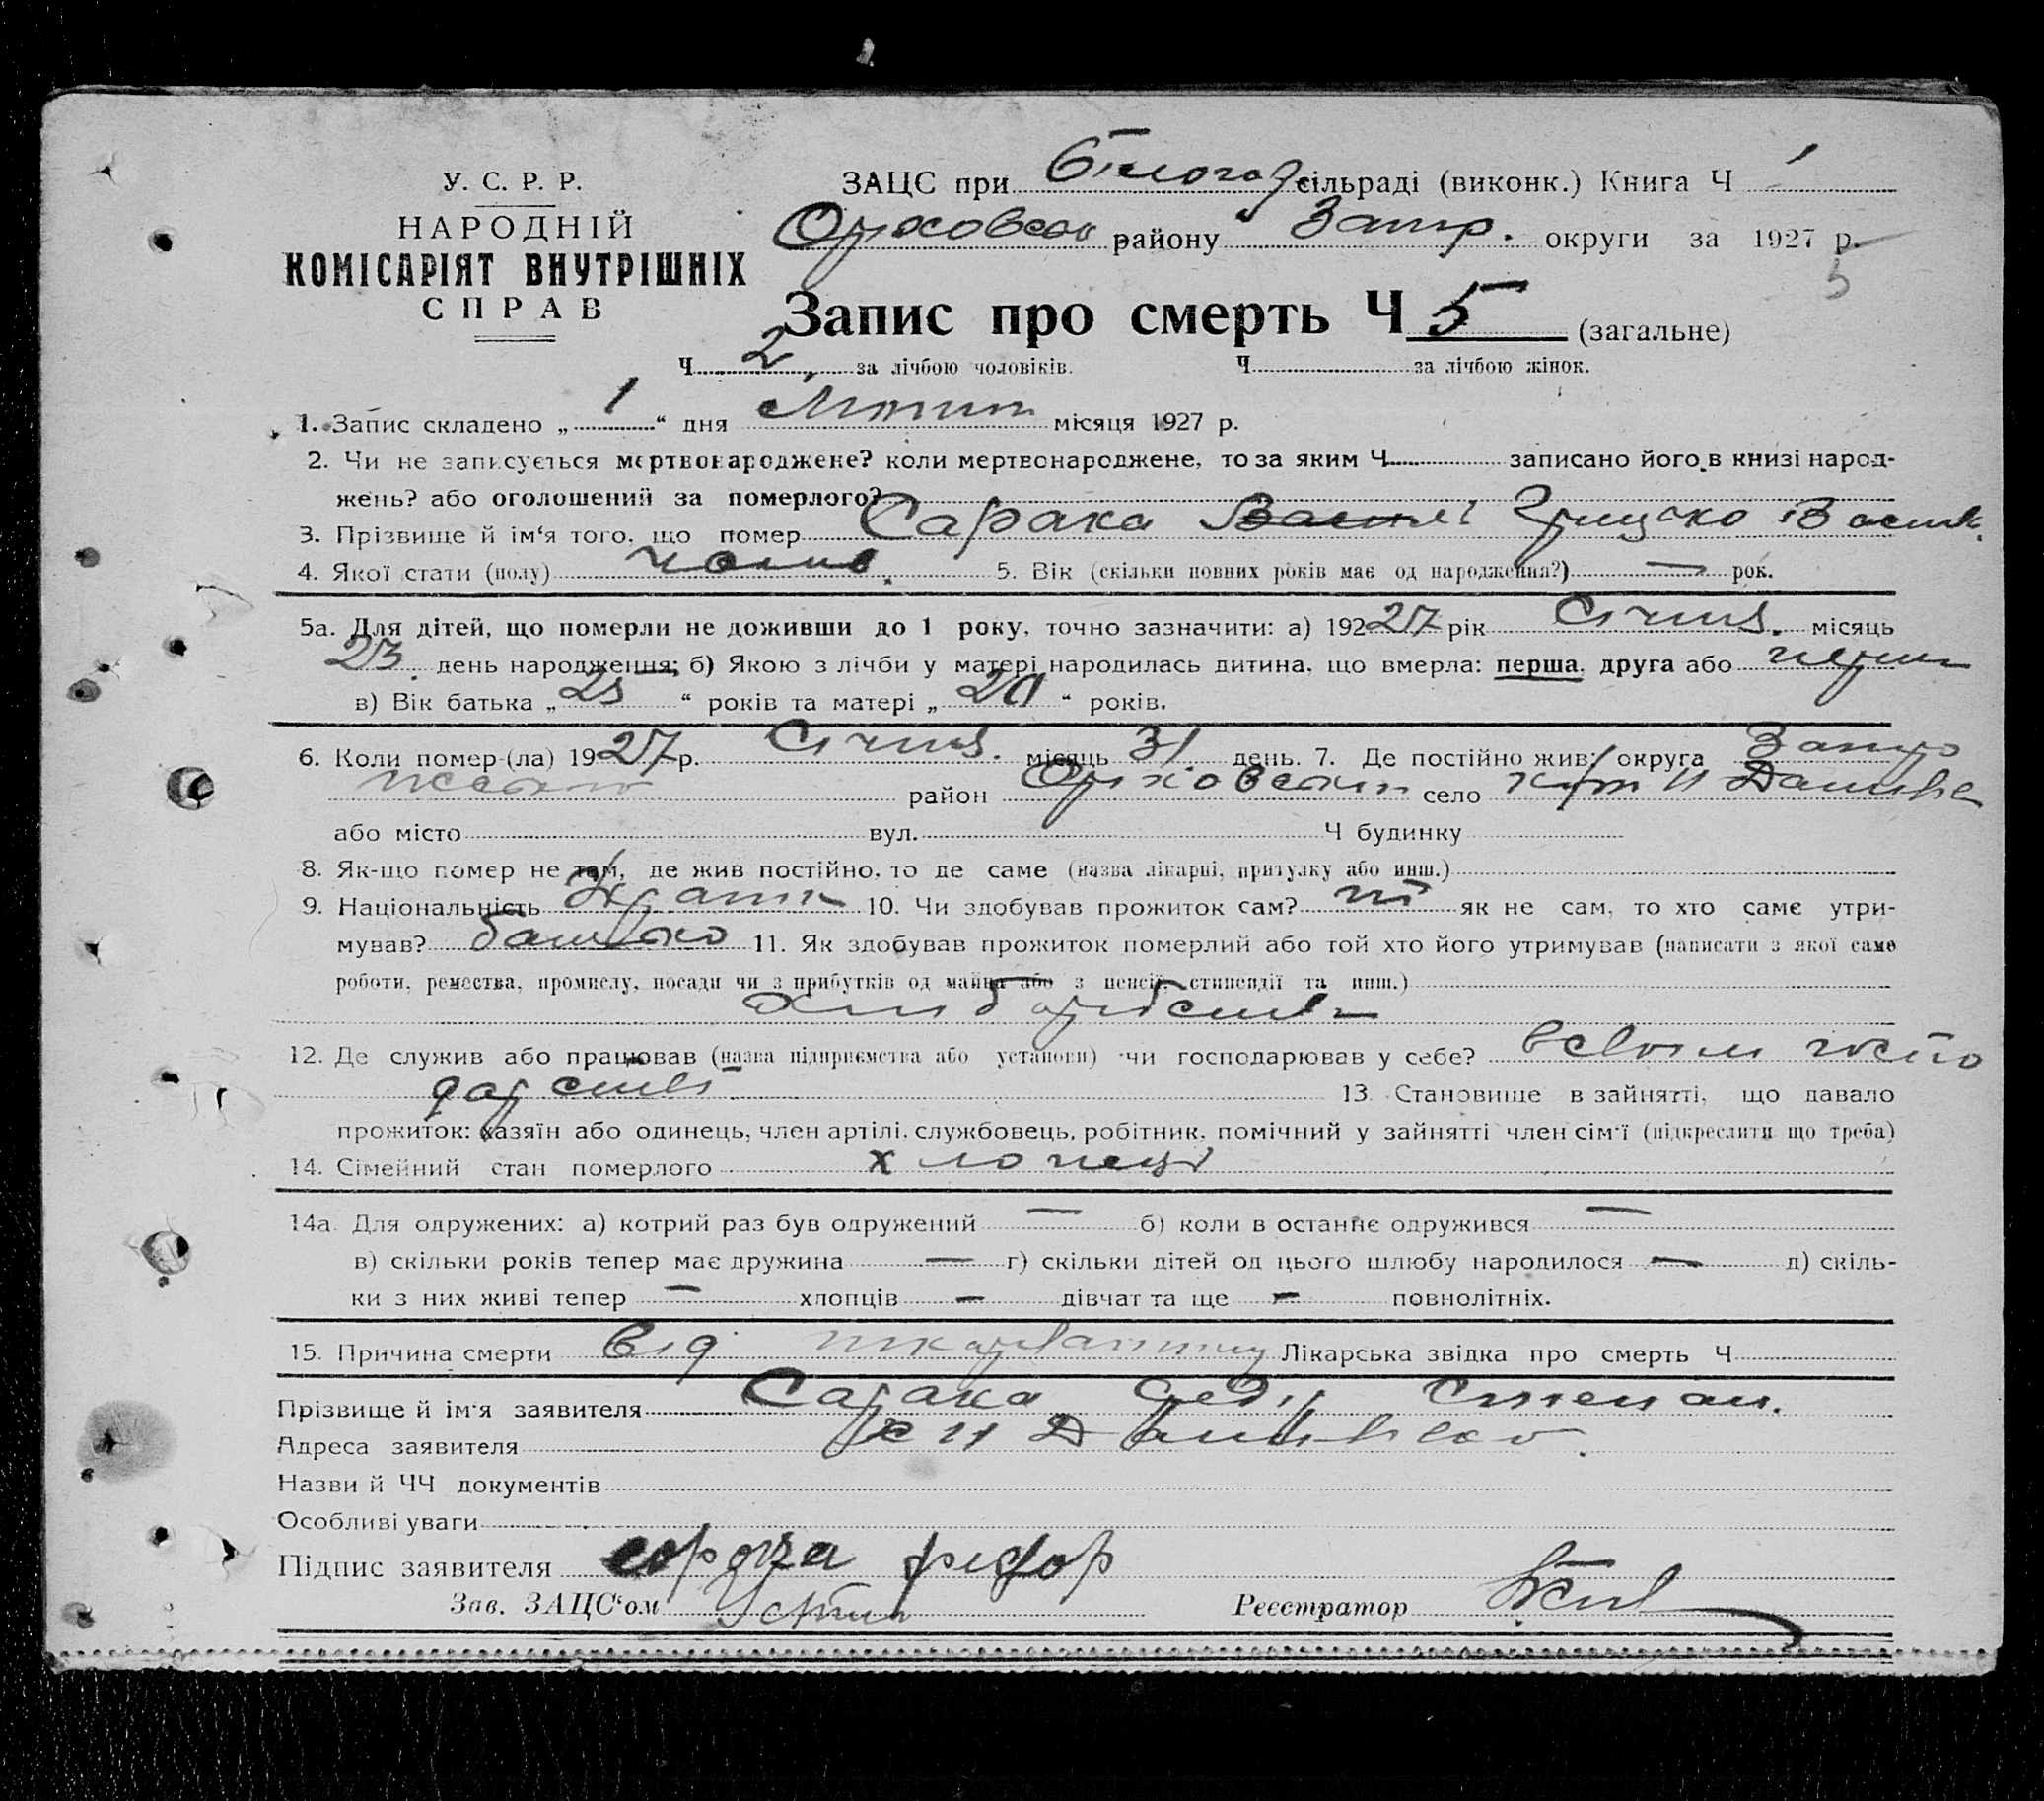 У. С. Р. Р.
НАРОДНІЙ
КОМІСАРІЯТ ВНУТРІШНІХ
СПРАВ
ЗАЦС при Білогор сільраді (виконк.) Книга Ч 1
району Запор. округи за 1927 р.
5
Запис про смерть Ч 5 (загальне)
Ч 2 за лічбою чоловіків. Ч за лічбою жінок.
1. Запис складено „ 1 “ дня Лютня місяця 1927 р.
2. Чи не записується мертвонароджене? коли мертвонароджене, то за яким Ч записано його в книзі народ-
жень? або оголошений за померлого?
3. Прізвище й ім‘я того, що помер Сарака Грицько Васил.
4. Якої стати (полу) 5. Вік (скільки повних років має од народження?) — рок.
5а. Для дітей, що померли не доживши до 1 року, точно зазначити: а) 192 27 рік Січня. місяць
23 день народження; б) Якою з лічби у матері народилась дитина, що вмерла: перша, друга або перша
в) Вік батька „ 25 “ років та матері „ 20 “ років.
6. Коли помер-(ла) 19 27 р. Січня. місяць 31 день. 7. Де постійно жив: округа Запоро
жська район село хут
або місто вул. Ч будинку
8. Як-що помер не там, де жив постійно, то де саме (назва лікарні, притулку або инш.)
9. Національність 10. Чи здобував прожиток сам? ні як не сам, то хто саме утри-
мував? батько 11. Як здобував прожиток померлий або той хто його утримував (написати з якої саме
роботи, ремества, промислу, посади чи з прибутків од майна або з пенсії, стипендії та инш.)
хліборобство
12. Де служив або працював (назва підприємства або установи) чи господарював у себе? в своїм госпо
дарстві 13. Становище в зайнятті, що давало
прожиток: хазяїн або одинець, член артілі, службовець, робітник, помічний у зайнятті член сім‘ї (підкреслити що треба)
14. Сімейний стан померлого хлопець
14а. Для одружених: а) котрий раз був одружений — б) коли в останнє одружився —
в) скільки років тепер має дружина — г) скільки дітей од цього шлюбу народилося — д) скіль-
ки з них живі тепер — хлопців — дівчат та ще — повнолітніх.
15. Причина смерти від Лікарська звідка про смерть Ч
Прізвище й ім‘я заявителя Сарака Федір Степан.
Адреса заявителя
Назви й ЧЧ документів
Особливі уваги
Підпис заявителя
Зав. ЗАЦС‘ом Реєстратор